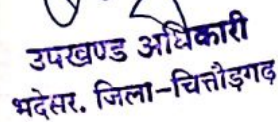 उपखण्ड अधिकारी
भदेसर. जिला-चित्तौड़गढ़